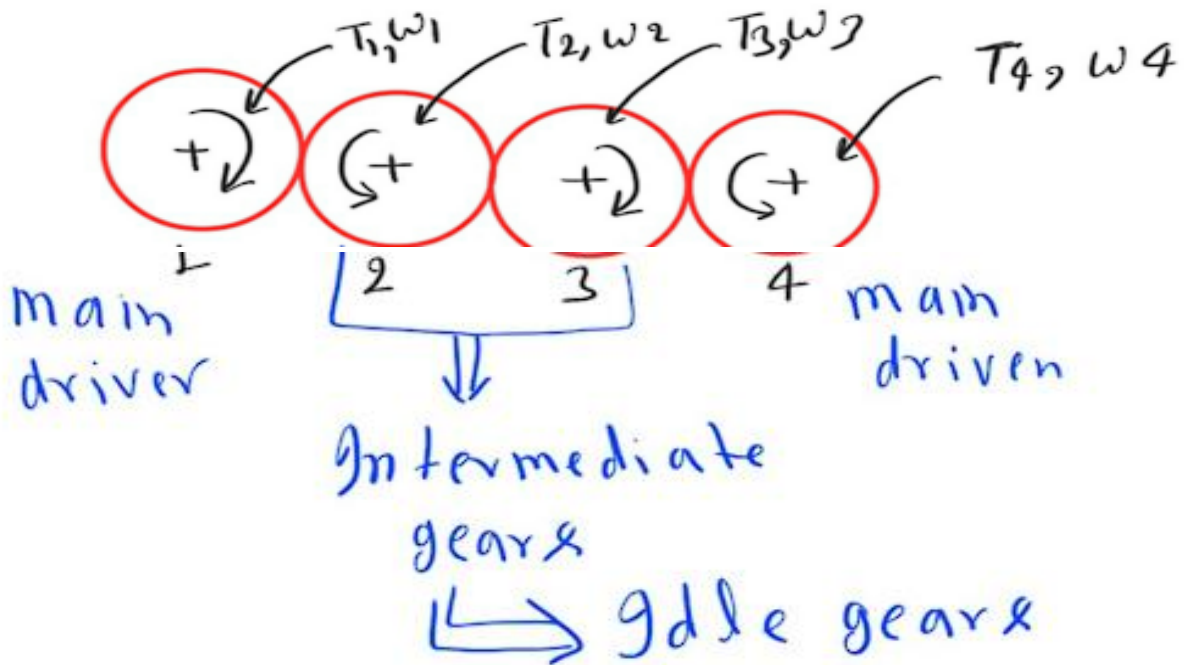 T1,ω1 T2, ω2 T3,ω3 T4, ω4
+ + + +
1 2 3 4
main main
driver driven
Intermediate
gears
Idle gears